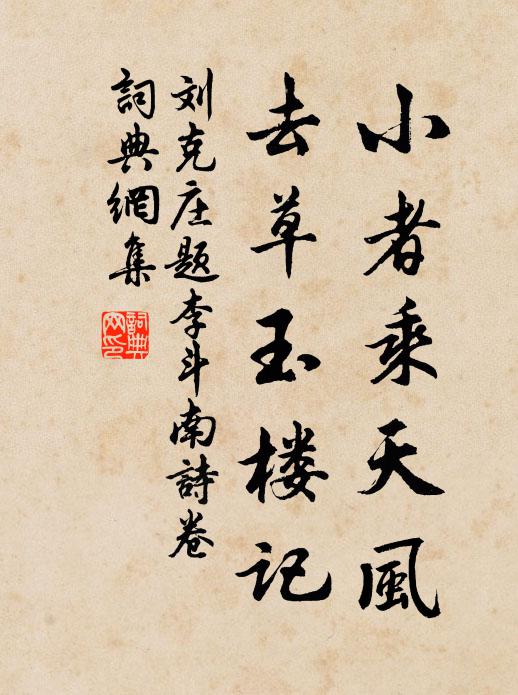 小者乘天風
去草玉楼记
刘克庄题李斗南詩卷
詞典網集
詞典网印